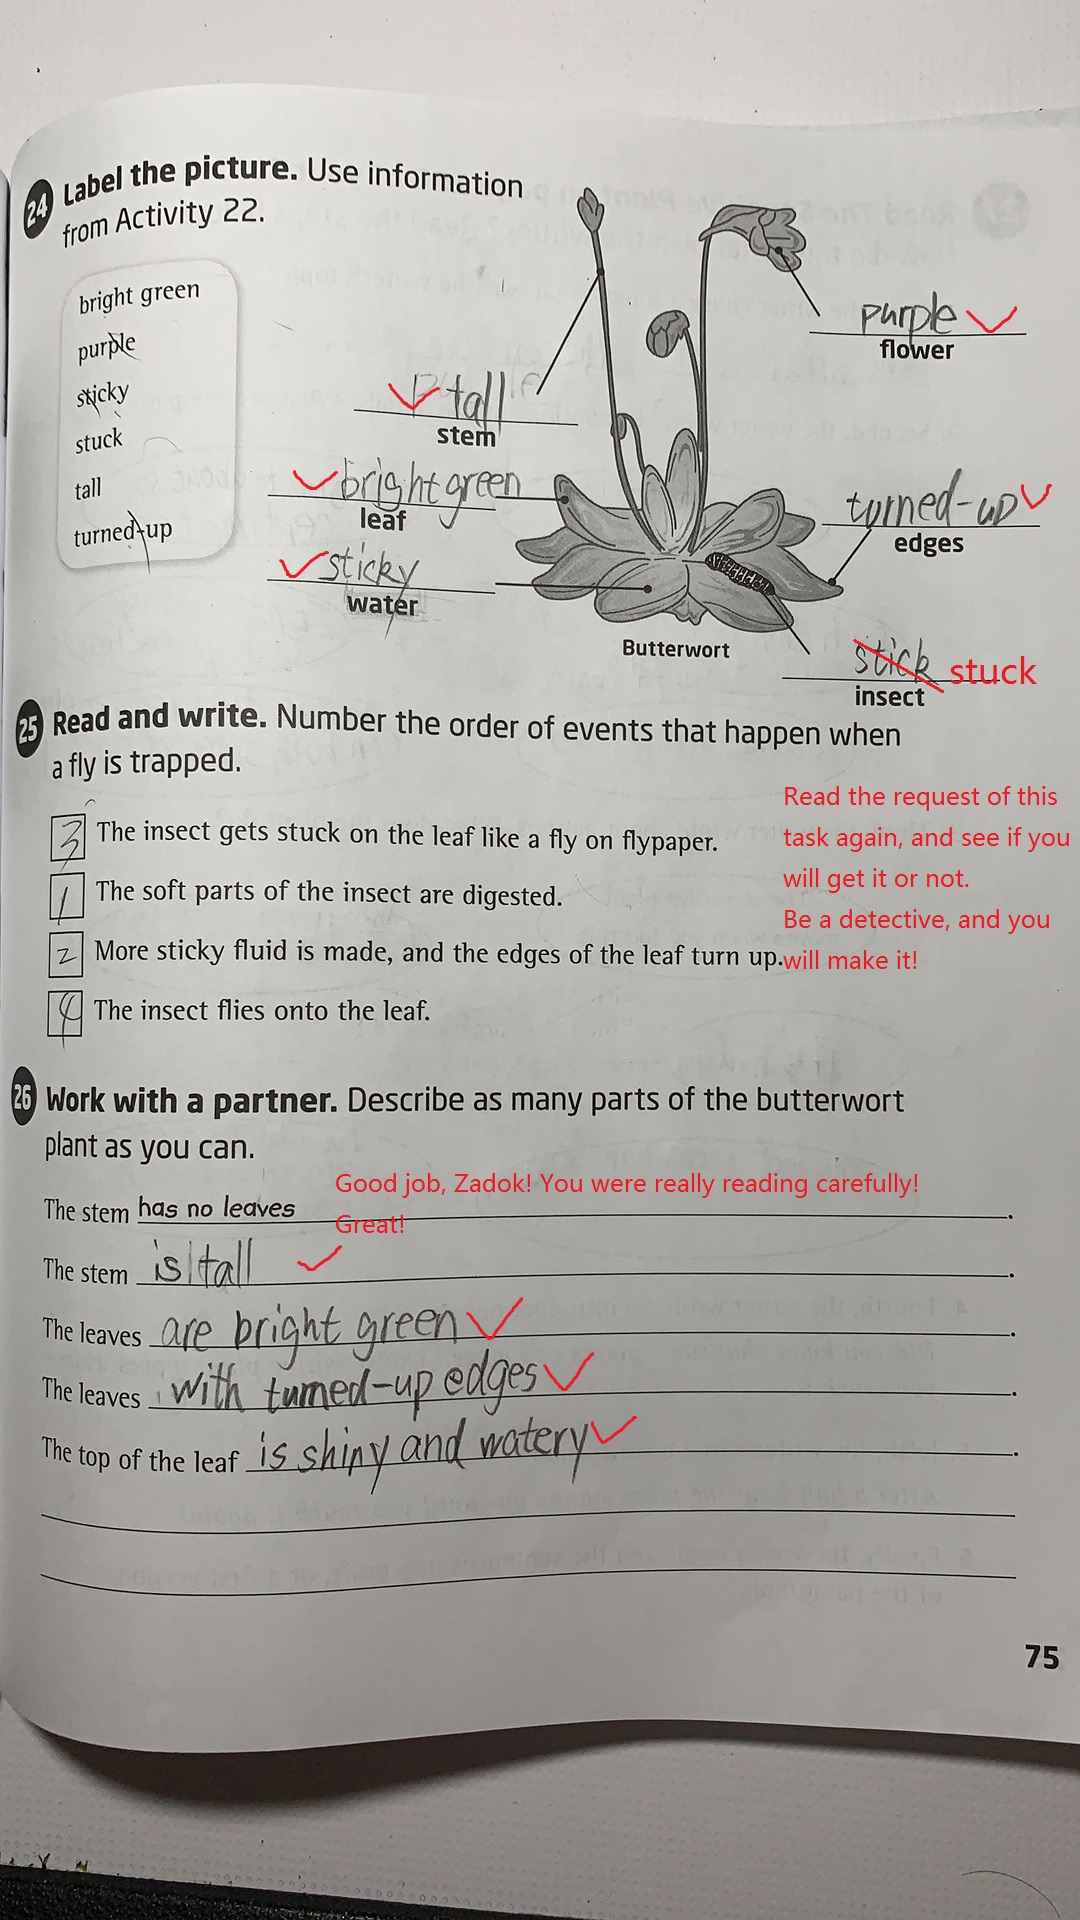 24 Label the picture. Use information
from Activity 22.
bright green
purple
sticky
stuck
tall
turned-up
purple
flower
tall
stem
bright green
leaf
turned-up
edges
sticky
water
Butterwort
stick stuck
insect
25 Read and write. Number the order of events that happen when
a fly is trapped.
3 The insect gets stuck on the leaf like a fly on flypaper.
1 The soft parts of the insect are digested.
2 More sticky fluid is made, and the edges of the leaf turn up.
4 The insect flies onto the leaf.
Read the request of this
task again, and see if you
will get it or not.
Be a detective, and you
will make it!
26 Work with a partner. Describe as many parts of the butterwort
plant as you can.
Good job, Zadok! You were really reading carefully!
Great!
The stem has no leaves.
The stem is tall.
The leaves are bright green.
The leaves with turned-up edges.
The top of the leaf is shiny and watery.
75